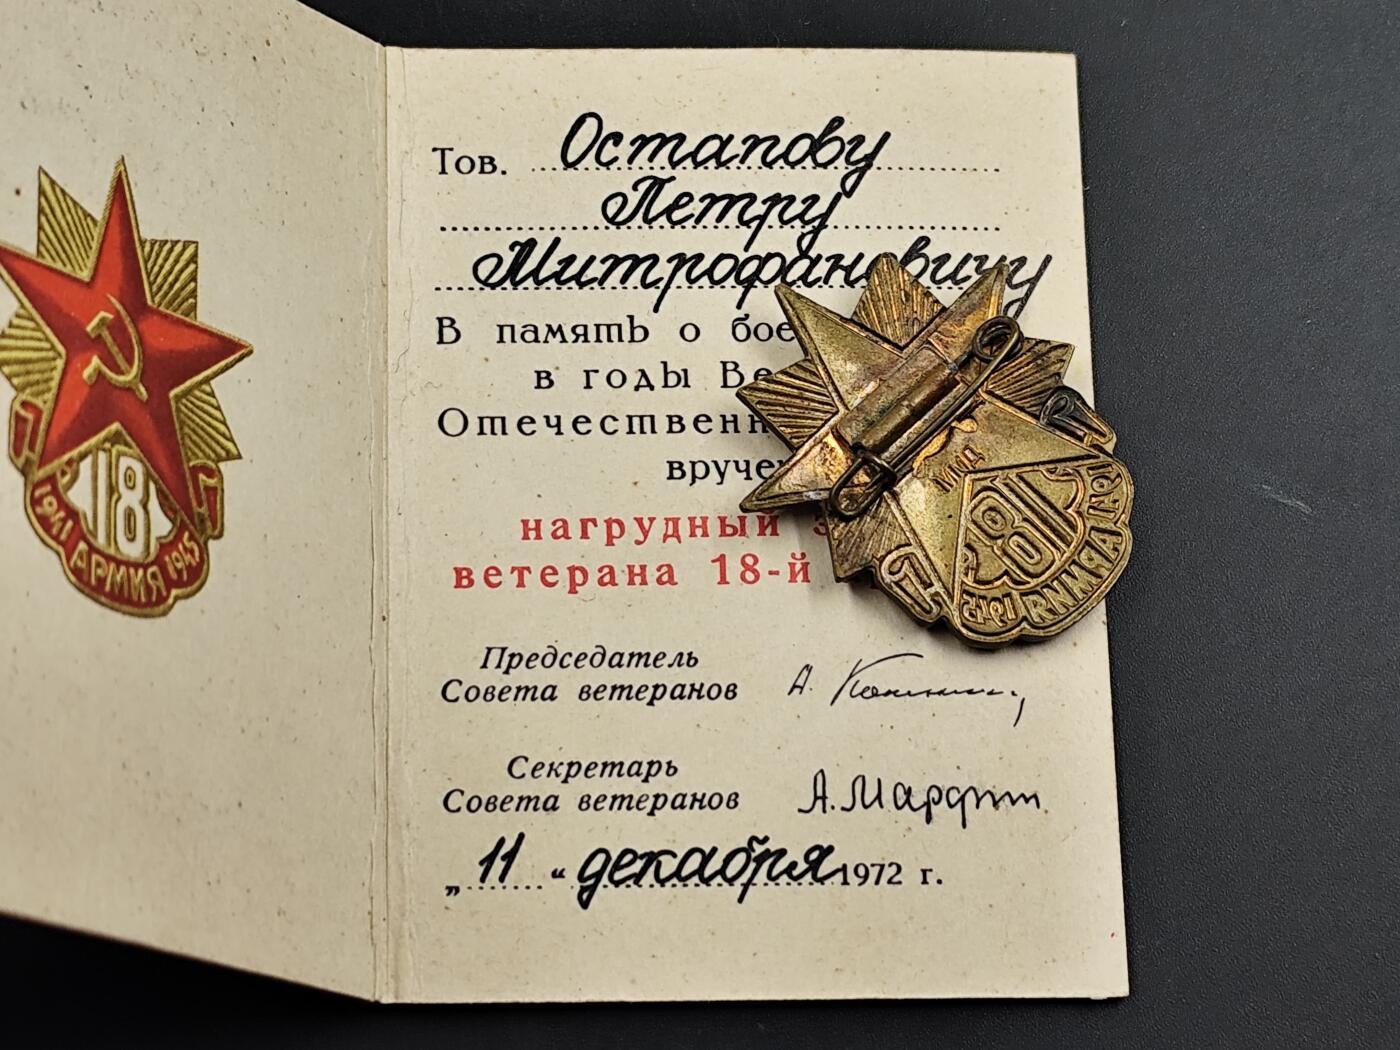 18
1941 АРМИЯ 1945
Тов. Остапову
Петру
Митрофановичу
В память о бое
в годы Ве
Отечественн
вручен
нагрудный з
ветерана 18-й
Председатель
Совета ветеранов
Секретарь
Совета ветеранов А. Марфин
„11“ декабря 1972 г.
ММД
18
1941 АРМИЯ 1945